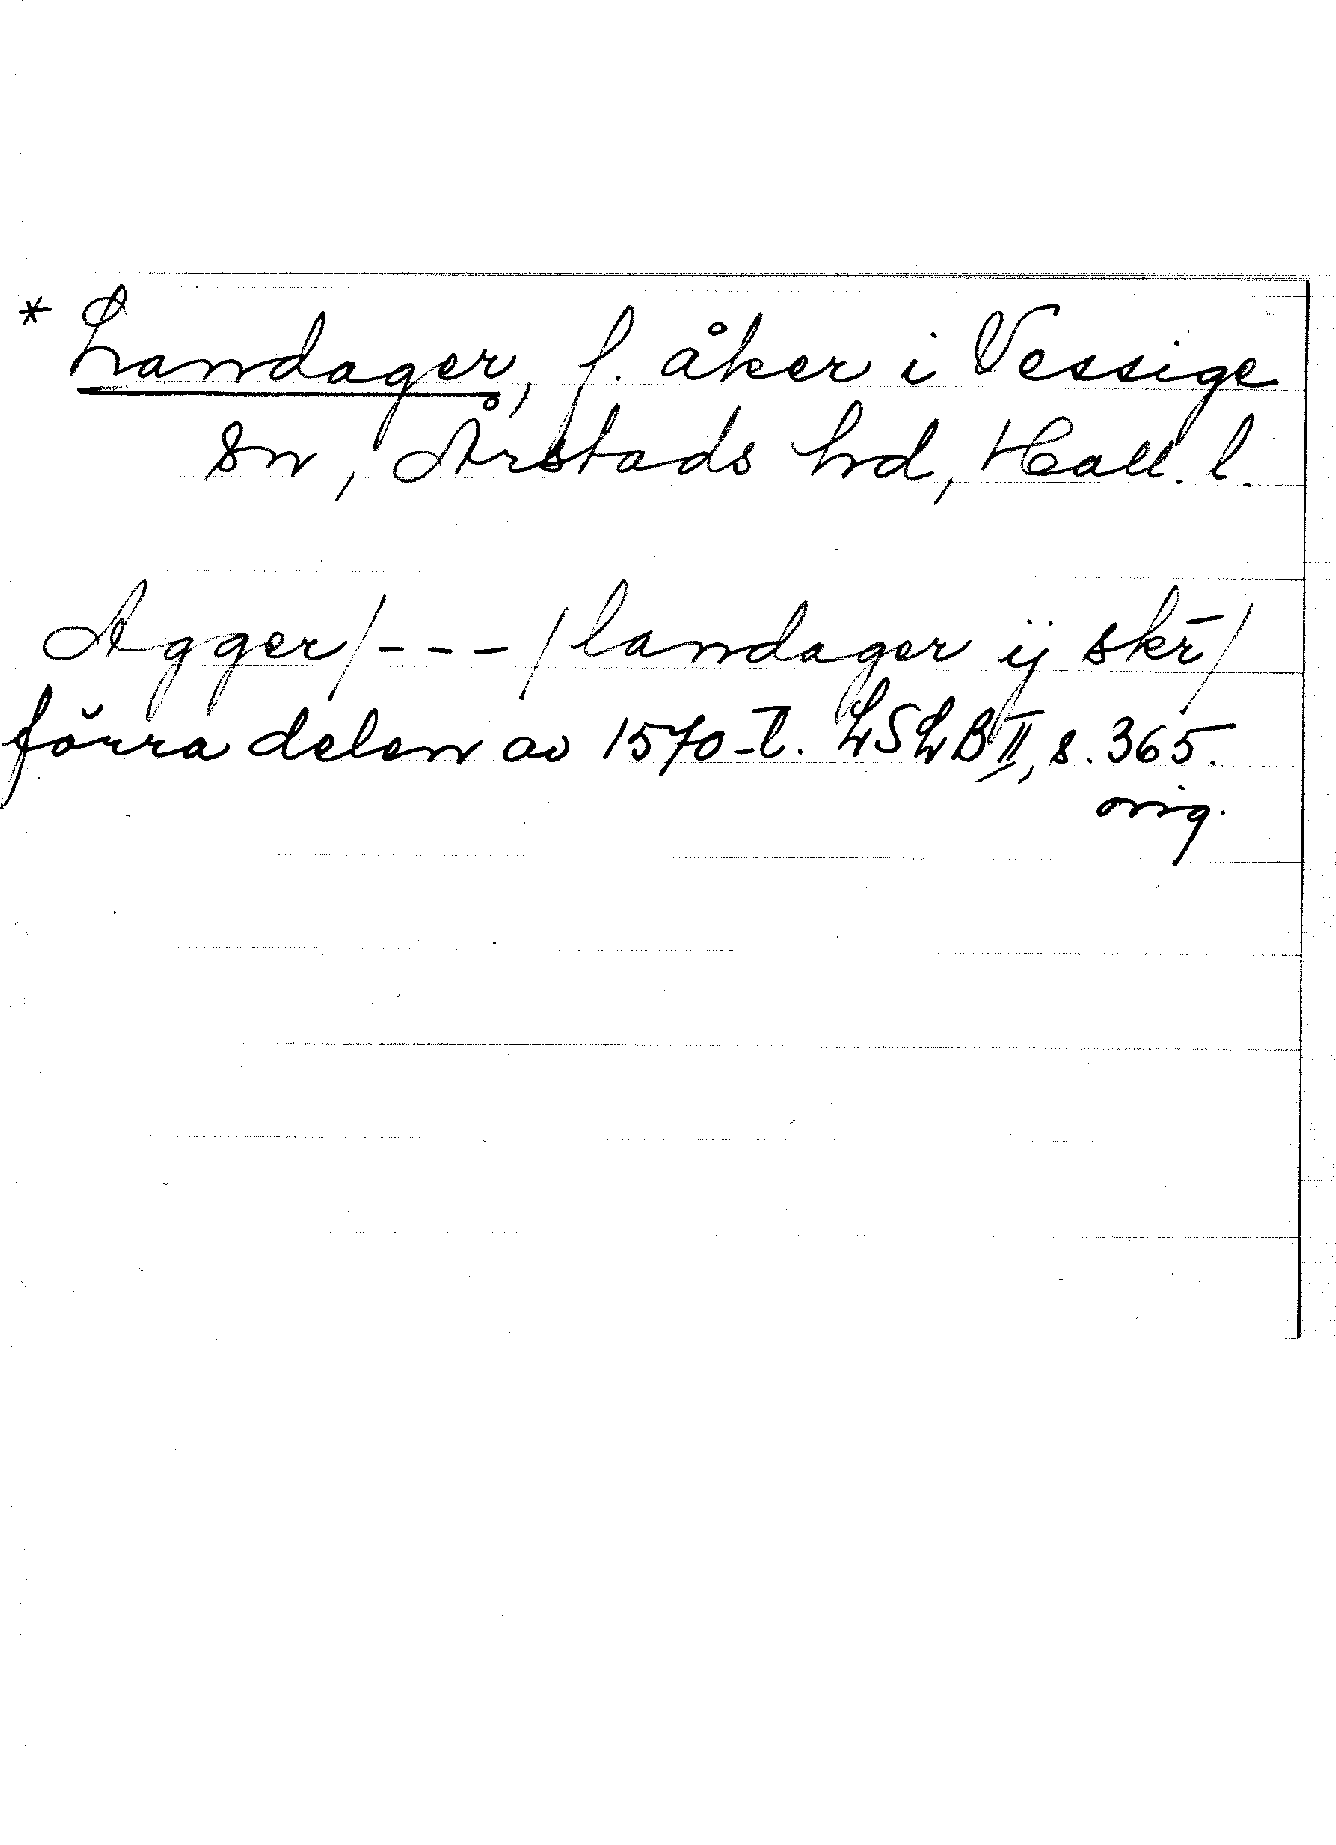 * Landager, f. åker i Vessige
sn, Årstads hd, Hall. l.
Agger/---/landager ij skr̄/
förra delen av 1570-t. LSLB II, s. 365.
orig.